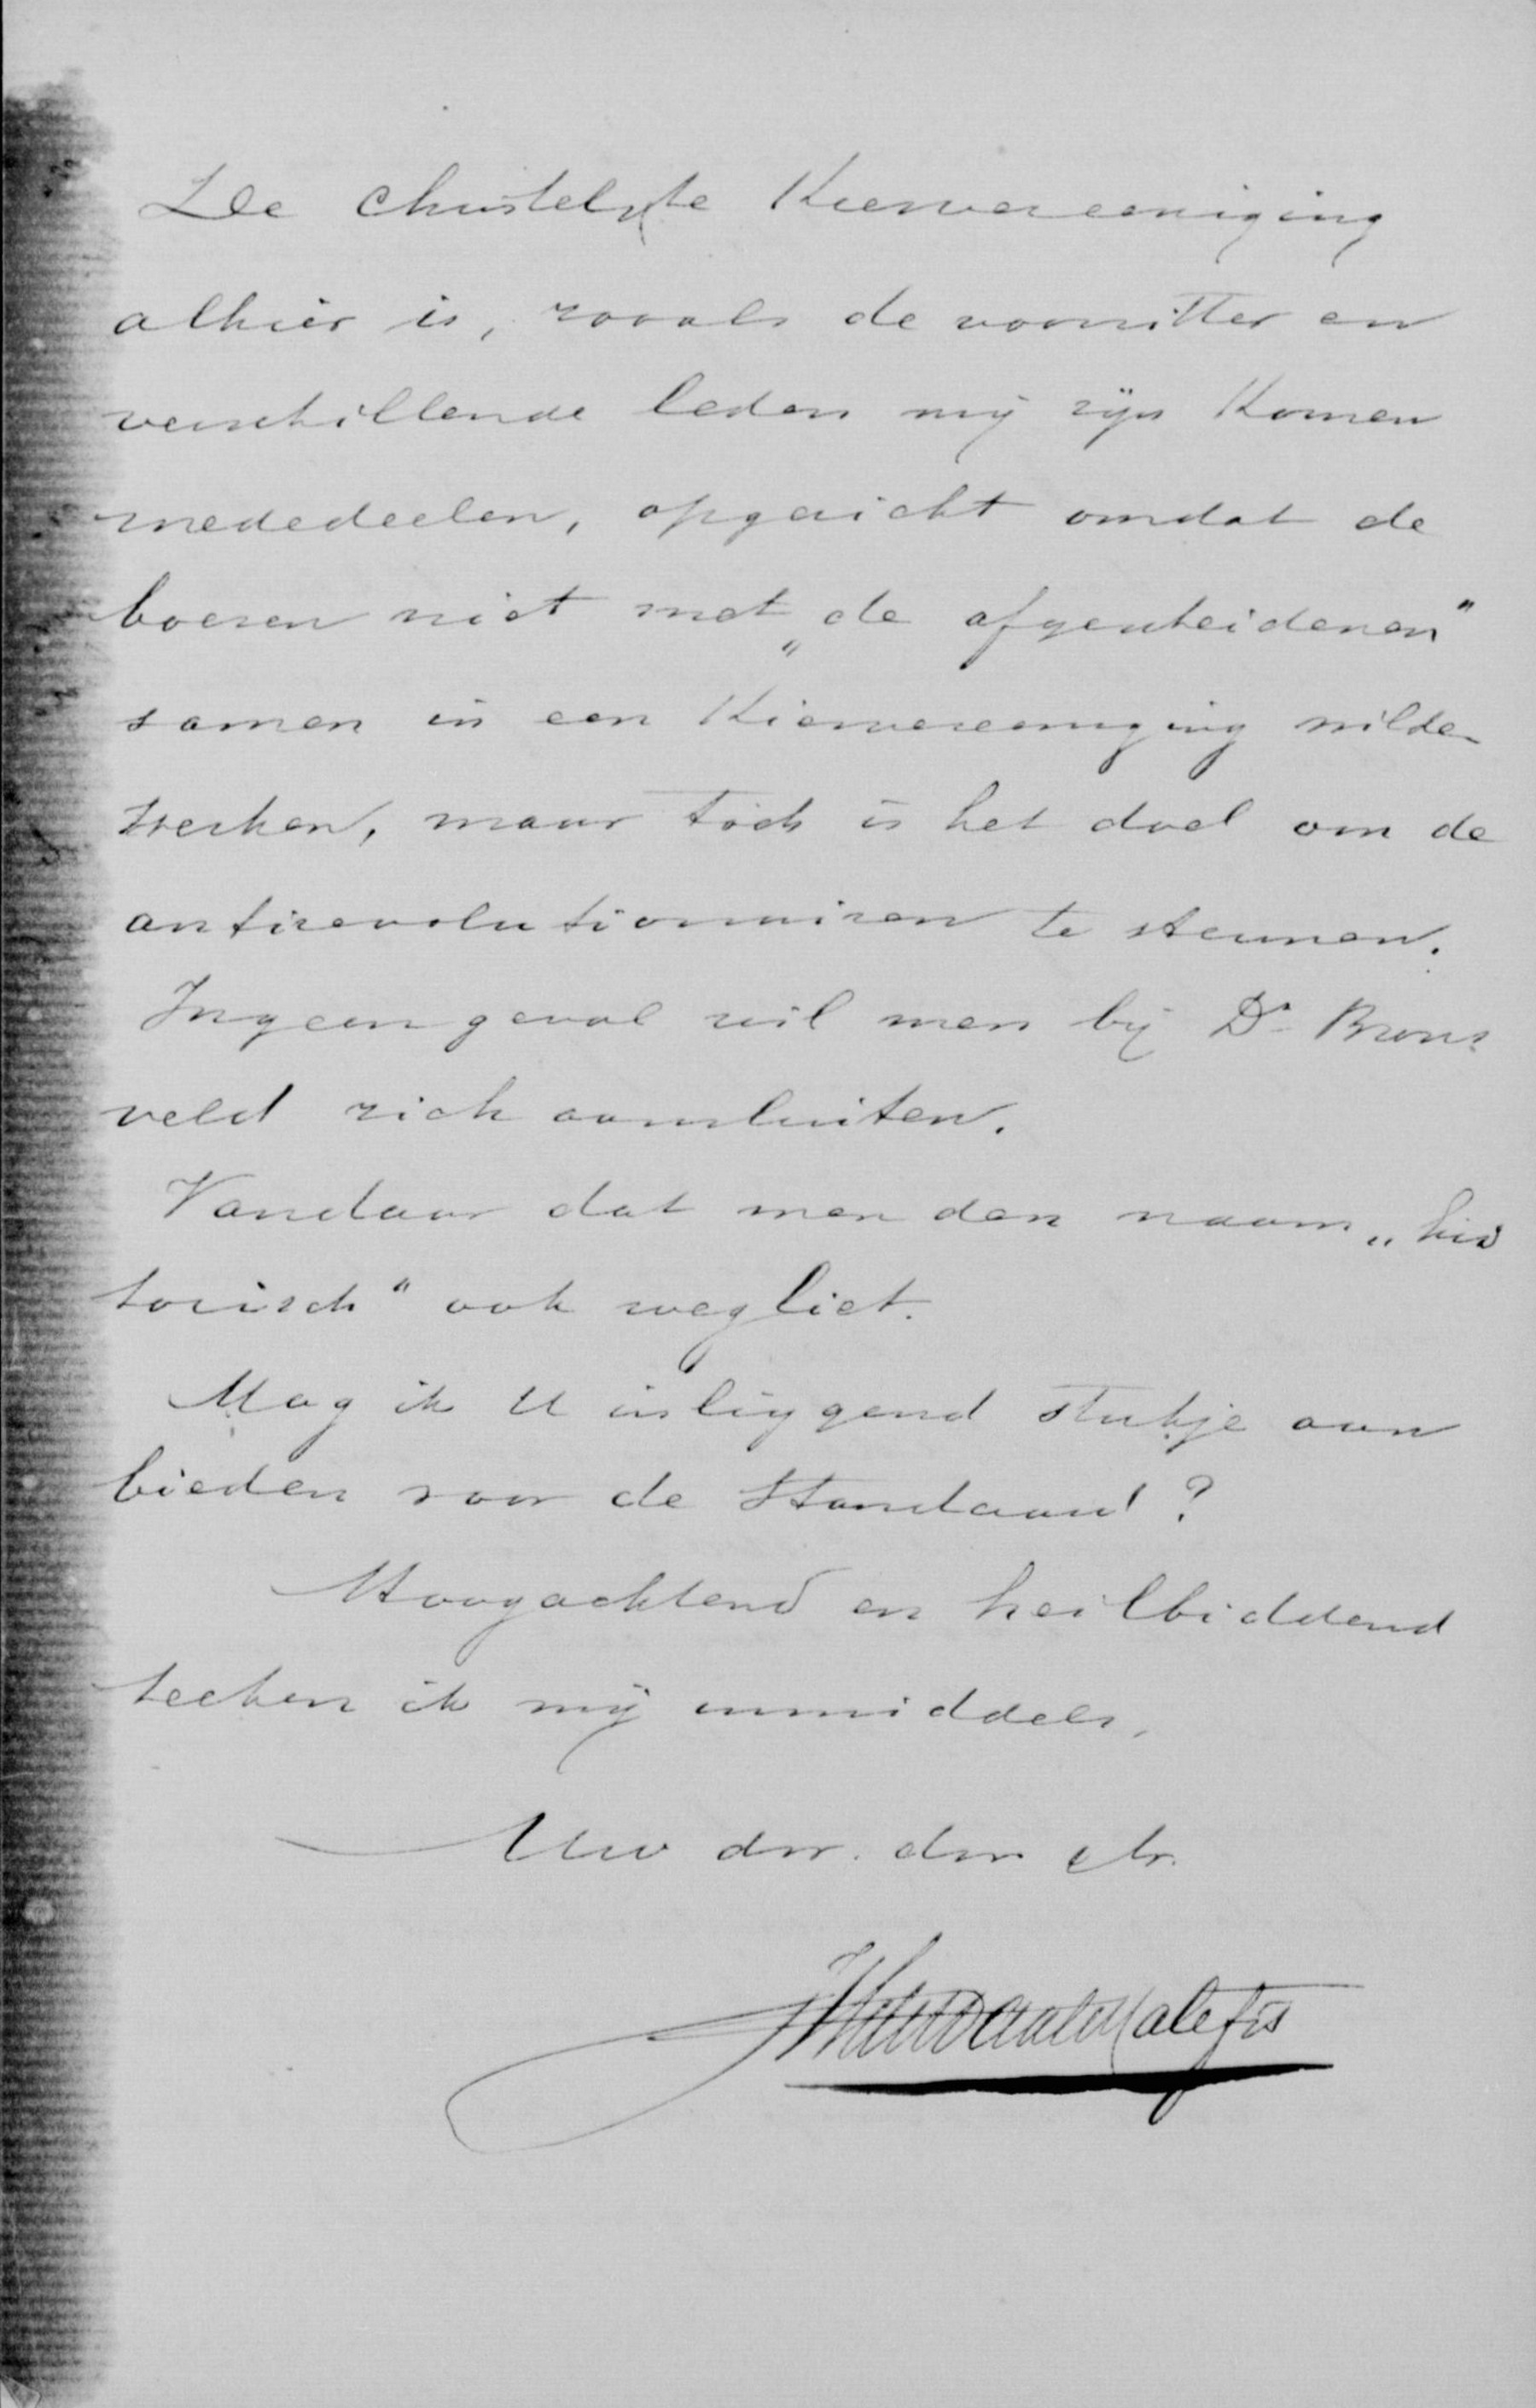 De christelijke Kiesvereeniging
alhier is, zooals de voorzitter en
verschillende leden mij zijn komen
mededeelen, opgericht omdat de
boeren niet met „de afgescheidenen"
samen in een Kiesvereeniging wilden
werken, maar toch is het doel om de
antirevolutionnairen te steunen.
In geen geval wil men bij Dr Brons
veld zich aansluiten.
Vandaar dat men den naam „his
torisch" ook wegliet.
Mag ik U insliggend stukje aan
bieden voor de Standaard?
Hoogachtend en heilbiddend
teeken ik mij inmiddels,
Uw dw. dnr. en br.
Malefijt